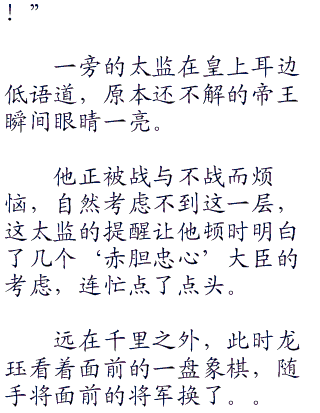 ！”
一旁的太监在皇上耳边
低语道，原本还不解的帝王
瞬间眼睛一亮。
他正被战与不战而烦
恼，自然考虑不到这一层，
这太监的提醒让他顿时明白
了几个‘赤胆忠心’大臣的
考虑，连忙点了点头。
远在千里之外，此时龙
珏看着面前的一盘象棋，随
手将面前的将军换了。。